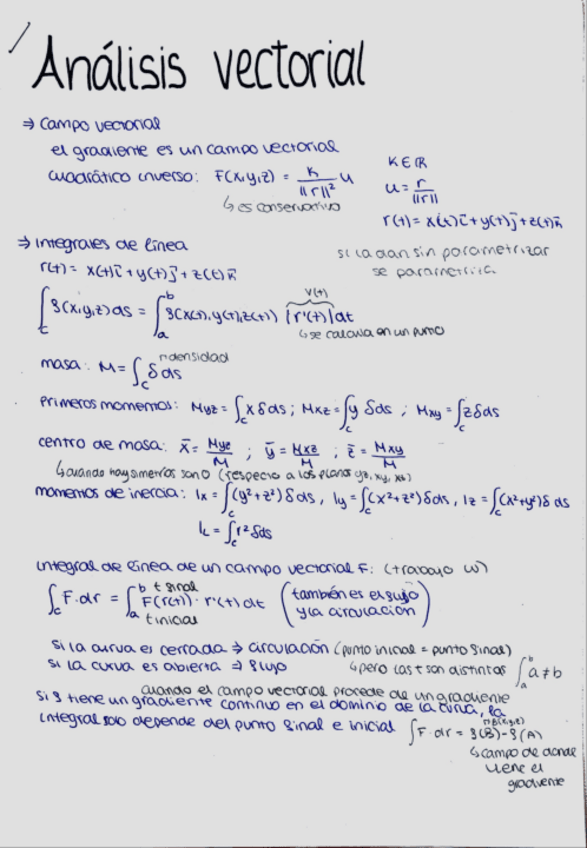 Análisis vectorial
⇒ campo vectorial
el gradiente es un campo vectorial
cuadrático inverso: F(x,y,z) = K/||r||² u
K ∈ ℝ
u = r/||r||
↳ es conservativo
r(t) = x(t)i + y(t)j + z(t)k
⇒ integrales de línea
si la dan sin parametrizar
se parametriza
r(t) = x(t)i + y(t)j + z(t)k
v(t)
∫_C f(x,y,z)ds = ∫_a^b f(x(t),y(t),z(t)) |r'(t)|dt
↳ se calcula en un punto
masa: M = ∫_C δds
densidad
primeros momentos: Myz = ∫_C xδds ; Mxz = ∫_C y δds ; Mxy = ∫_C zδds
centro de masa: x̄ = Myz/M ; ȳ = Mxz/M ; z̄ = Mxy/M
↳ cuando hay simetrías son 0 (respecto a los planos yz, xy, xz)
momentos de inercia: Ix = ∫_C (y²+z²)δds, Iy = ∫_C (x²+z²)δds, Iz = ∫_C (x²+y²)δds
I_L = ∫_C r²δds
integral de línea de un campo vectorial F: (trabajo W)
∫_C F·dr = ∫_a^b F(r(t))·r'(t)dt (también es el flujo y la circulación)
t final
t inicial
si la curva es cerrada ⇒ circulación (punto inicial = punto final)
si la curva es abierta ⇒ flujo ↳ pero las t son distintas ∫_a^b a≠b
cuando el campo vectorial procede de un gradiente
si f tiene un gradiente continuo en el dominio de la curva, la
integral solo depende del punto final e inicial ∫F·dr = f(B)-f(A)
B(x,y,z)
↳ campo de donde
viene el
gradiente